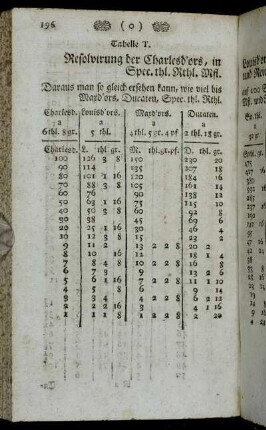 196 (o)
Tabelle T.
Resolvirung der Charlesd'ors, in
Spec. thl. Rthl. Mfl.
Daraus man so gleich ersehen kann, wie viel bis
Maxd'ors, Ducaten, Spec. thl. Rthl.
Charlesd. Louisd'ors. Maxd'ors. Ducaten.
a a a a
6 thl. 8 gr. 5 thl. 4 thl. 5 gr. 4 pf. 2 thl. 18 gr.
Charlesd. L. thl. gr. M. thl. gr. pf. D. thl. gr.
100 126 3 8 150 230 20
90 114 135 207 18
80 101 1 16 120 184 16
70 88 3 8 105 161 14
60 76 90 138 12
50 63 1 16 75 115 10
40 50 3 8 60 92 8
30 38 45 69 6
20 25 1 16 30 46 4
10 12 3 8 15 23 2
9 11 2 13 2 2 8 20 2
8 10 16 12 18 1 8
7 8 4 8 10 2 2 8 16 8
6 7 3 9 13 2 6
5 6 1 16 7 2 2 8 11 1 10
4 5 8 6 9 14
3 3 4 4 2 2 8 6 2 12
2 2 2 16 3 4 1 16
1 1 1 8 1 2 2 8 2 20